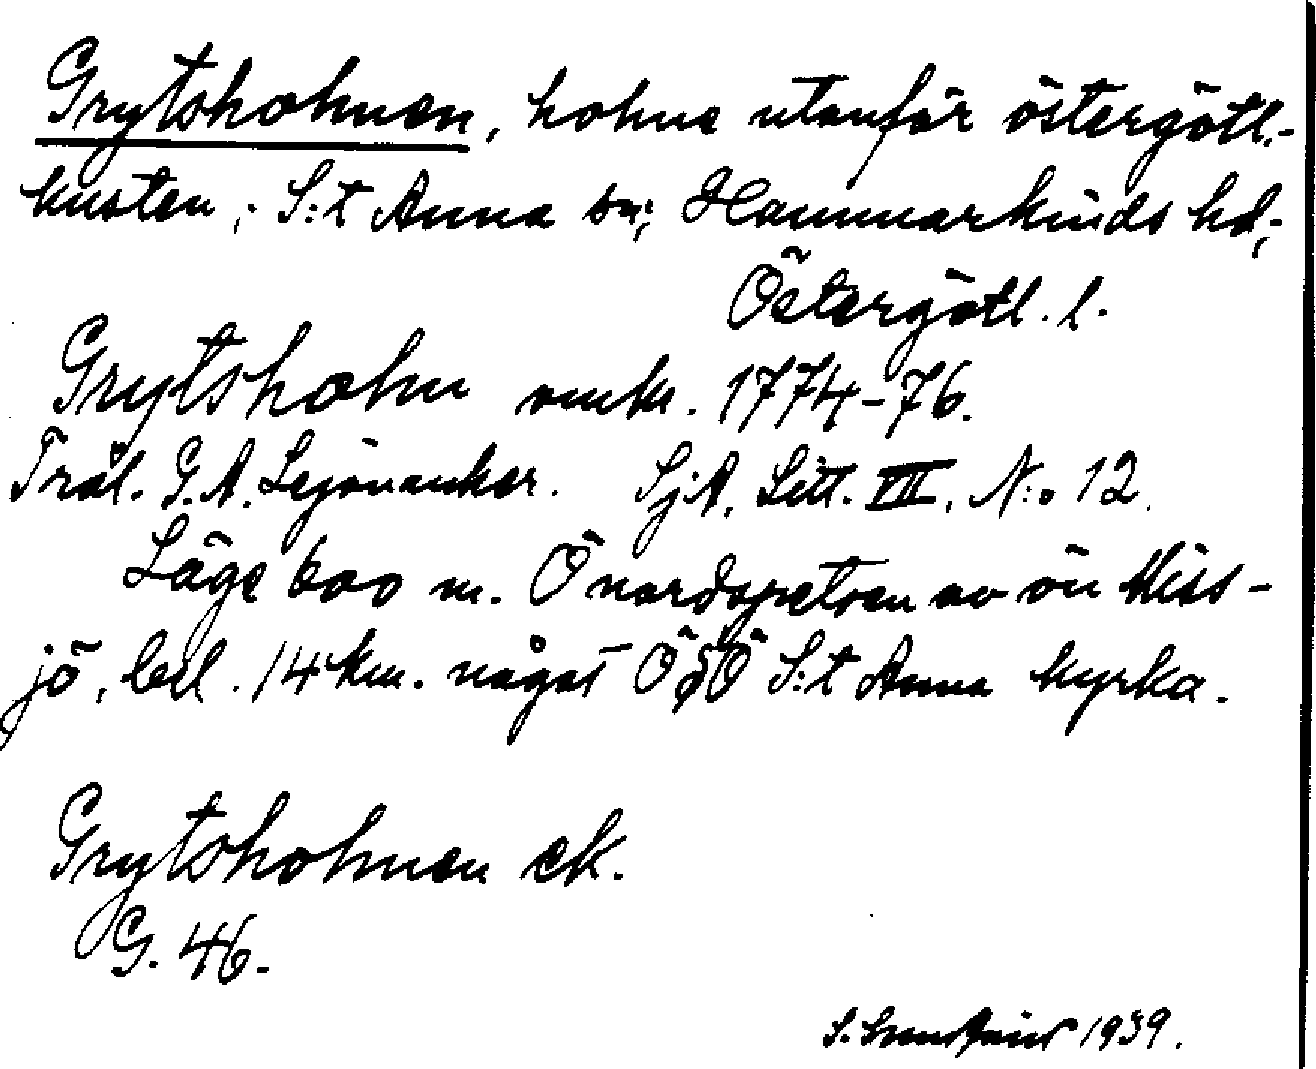 Grytsholmen, holme utanför östergötl.-
kusten; S:t Anna sn; Hammarkinds hd;
Östergötl. l.
Grytsholm omkr. 1774-76.
Träl. G. A. Lejonanker. SjA. Litt. VII. N:o 12.
Läge 600 m. Ö nordspetsen av ön Miss-
jö, bel. 14 km. något ÖSÖ S:t Anna kyrka.
Grytsholmen ek.
G. 46.
S. 1939.